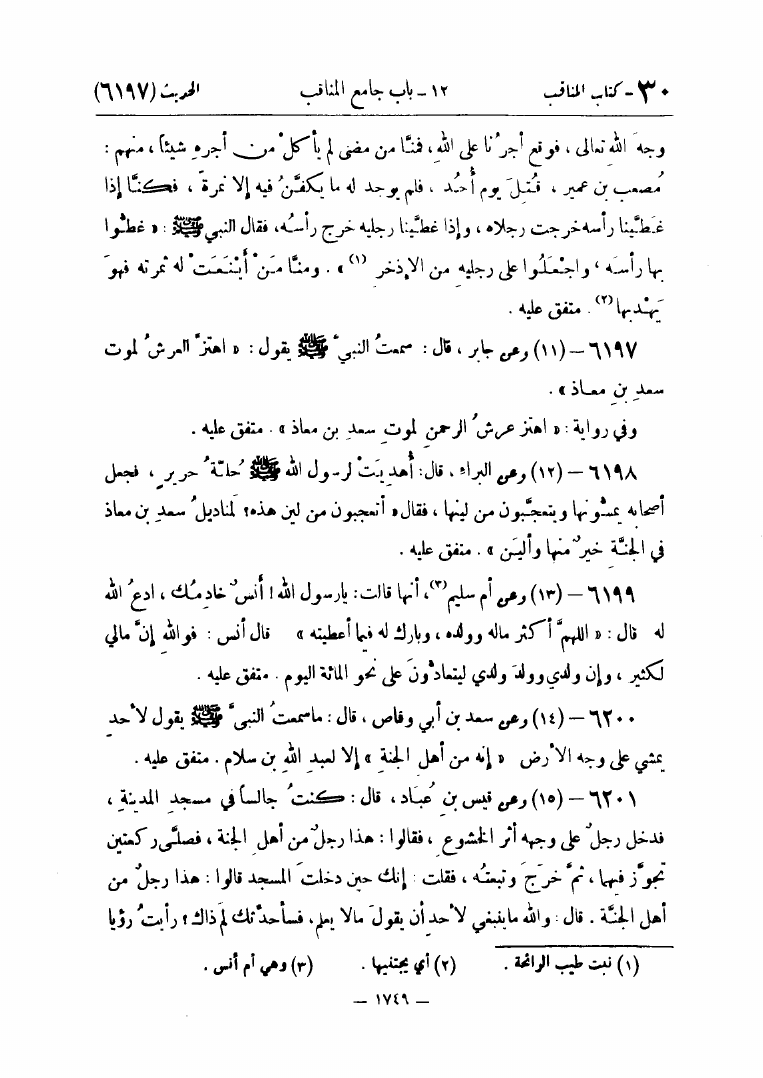 ٣٠ - كتاب المناقب ١٢ - باب جامع المناقب الحديث (٦١٩٧)
وجهَ الله تعالى ، فوقع أجرُنا على اللهِ، فمنَّا من مضى لم يأكلْ من أجرهِ شيئاً ، منهم :
مُصعب بن عمير ، قُتِلَ يوم أُحُد ، فلم يوجد له ما يكفَّنُ فيه إلا نمرة ، فكنَّا إذا
غطَّينا رأسه خرجت رجلاه ، وإذا غطَّينا رجليه خرج رأسُه، فقال النبي ﷺ : « غطُّوا
بها رأسَه ، واجْعَلُوا على رجليهِ من الإذخر (١) » . ومنَّا مَنْ أَيْنَعَتْ له ثمرته فهوَ
يَهْدِبها (٢) . متفق عليه .
٦١٩٧ – (١١) وعن جابر ، قال : سمعتُ النبيَّ ﷺ يقول : « اهتزَّ العرشُ لموت
سعدِ بنِ معاذ » .
وفي رواية : « اهتز عرشُ الرحمنِ لموتِ سعدِ بن معاذ » . متفق عليه .
٦١٩٨ – (١٢) وعن البراء ، قال : أُهديَتْ لرسول الله ﷺ حُلَّةُ حريرٍ ، فجعل
أصحابه يمسُّونها ويتعجَّبون من لينها ، فقال « أتعجبون من لين هذه؟ لمناديلُ سعدِ بن معاذ
في الجنَّةِ خيرٌ منها وأليَن » . متفق عليه .
٦١٩٩ – (١٣) وعن أم سليم (٣)، أنها قالت : يارسول الله ! أنسٌ خادمُك ، ادعُ الله
له قال : « اللهمَّ أكثر ماله وولده ، وبارك له فيما أعطيته » قال أنس : فواللهِ إنَّ مالي
لكثير ، وإن ولدي وولدَ ولدي ليتعادُّونَ على نحو المائة اليوم . متفق عليه .
٦٢٠٠ – (١٤) وعن سعد بن أبي وقاص ، قال : ماسمعتُ النبيَّ ﷺ يقول لأحدٍ
يمشي على وجه الأرض « إنه من أهلِ الجنةِ » إلا لعبدِ اللهِ بن سلام . متفق عليه .
٦٢٠١ – (١٥) وعن قيس بن عُبَاد ، قال : كنتُ جالساً في مسجدِ المدينةِ ،
فدخل رجلٌ على وجهه أثر الخشوع ، فقالوا : هذا رجلٌ من أهلِ الجنة ، فصلَّى ركعتين
تجوَّز فيهما ، ثمَّ خرَجَ وتبعتُه ، فقلت : إنك حين دخلتَ المسجد قالوا : هذا رجلٌ من
أهل الجنَّة . قال : والله ماينبغي لأحدٍ أن يقولَ مالا يعلم ، فسأحدِّثك لمَ ذاك ؟ رأيتُ رؤيا
(١) نبت طيب الرائحة . (٢) أي يجتنيها . (٣) وهي أم أنس .
– ١٧٤٩ –